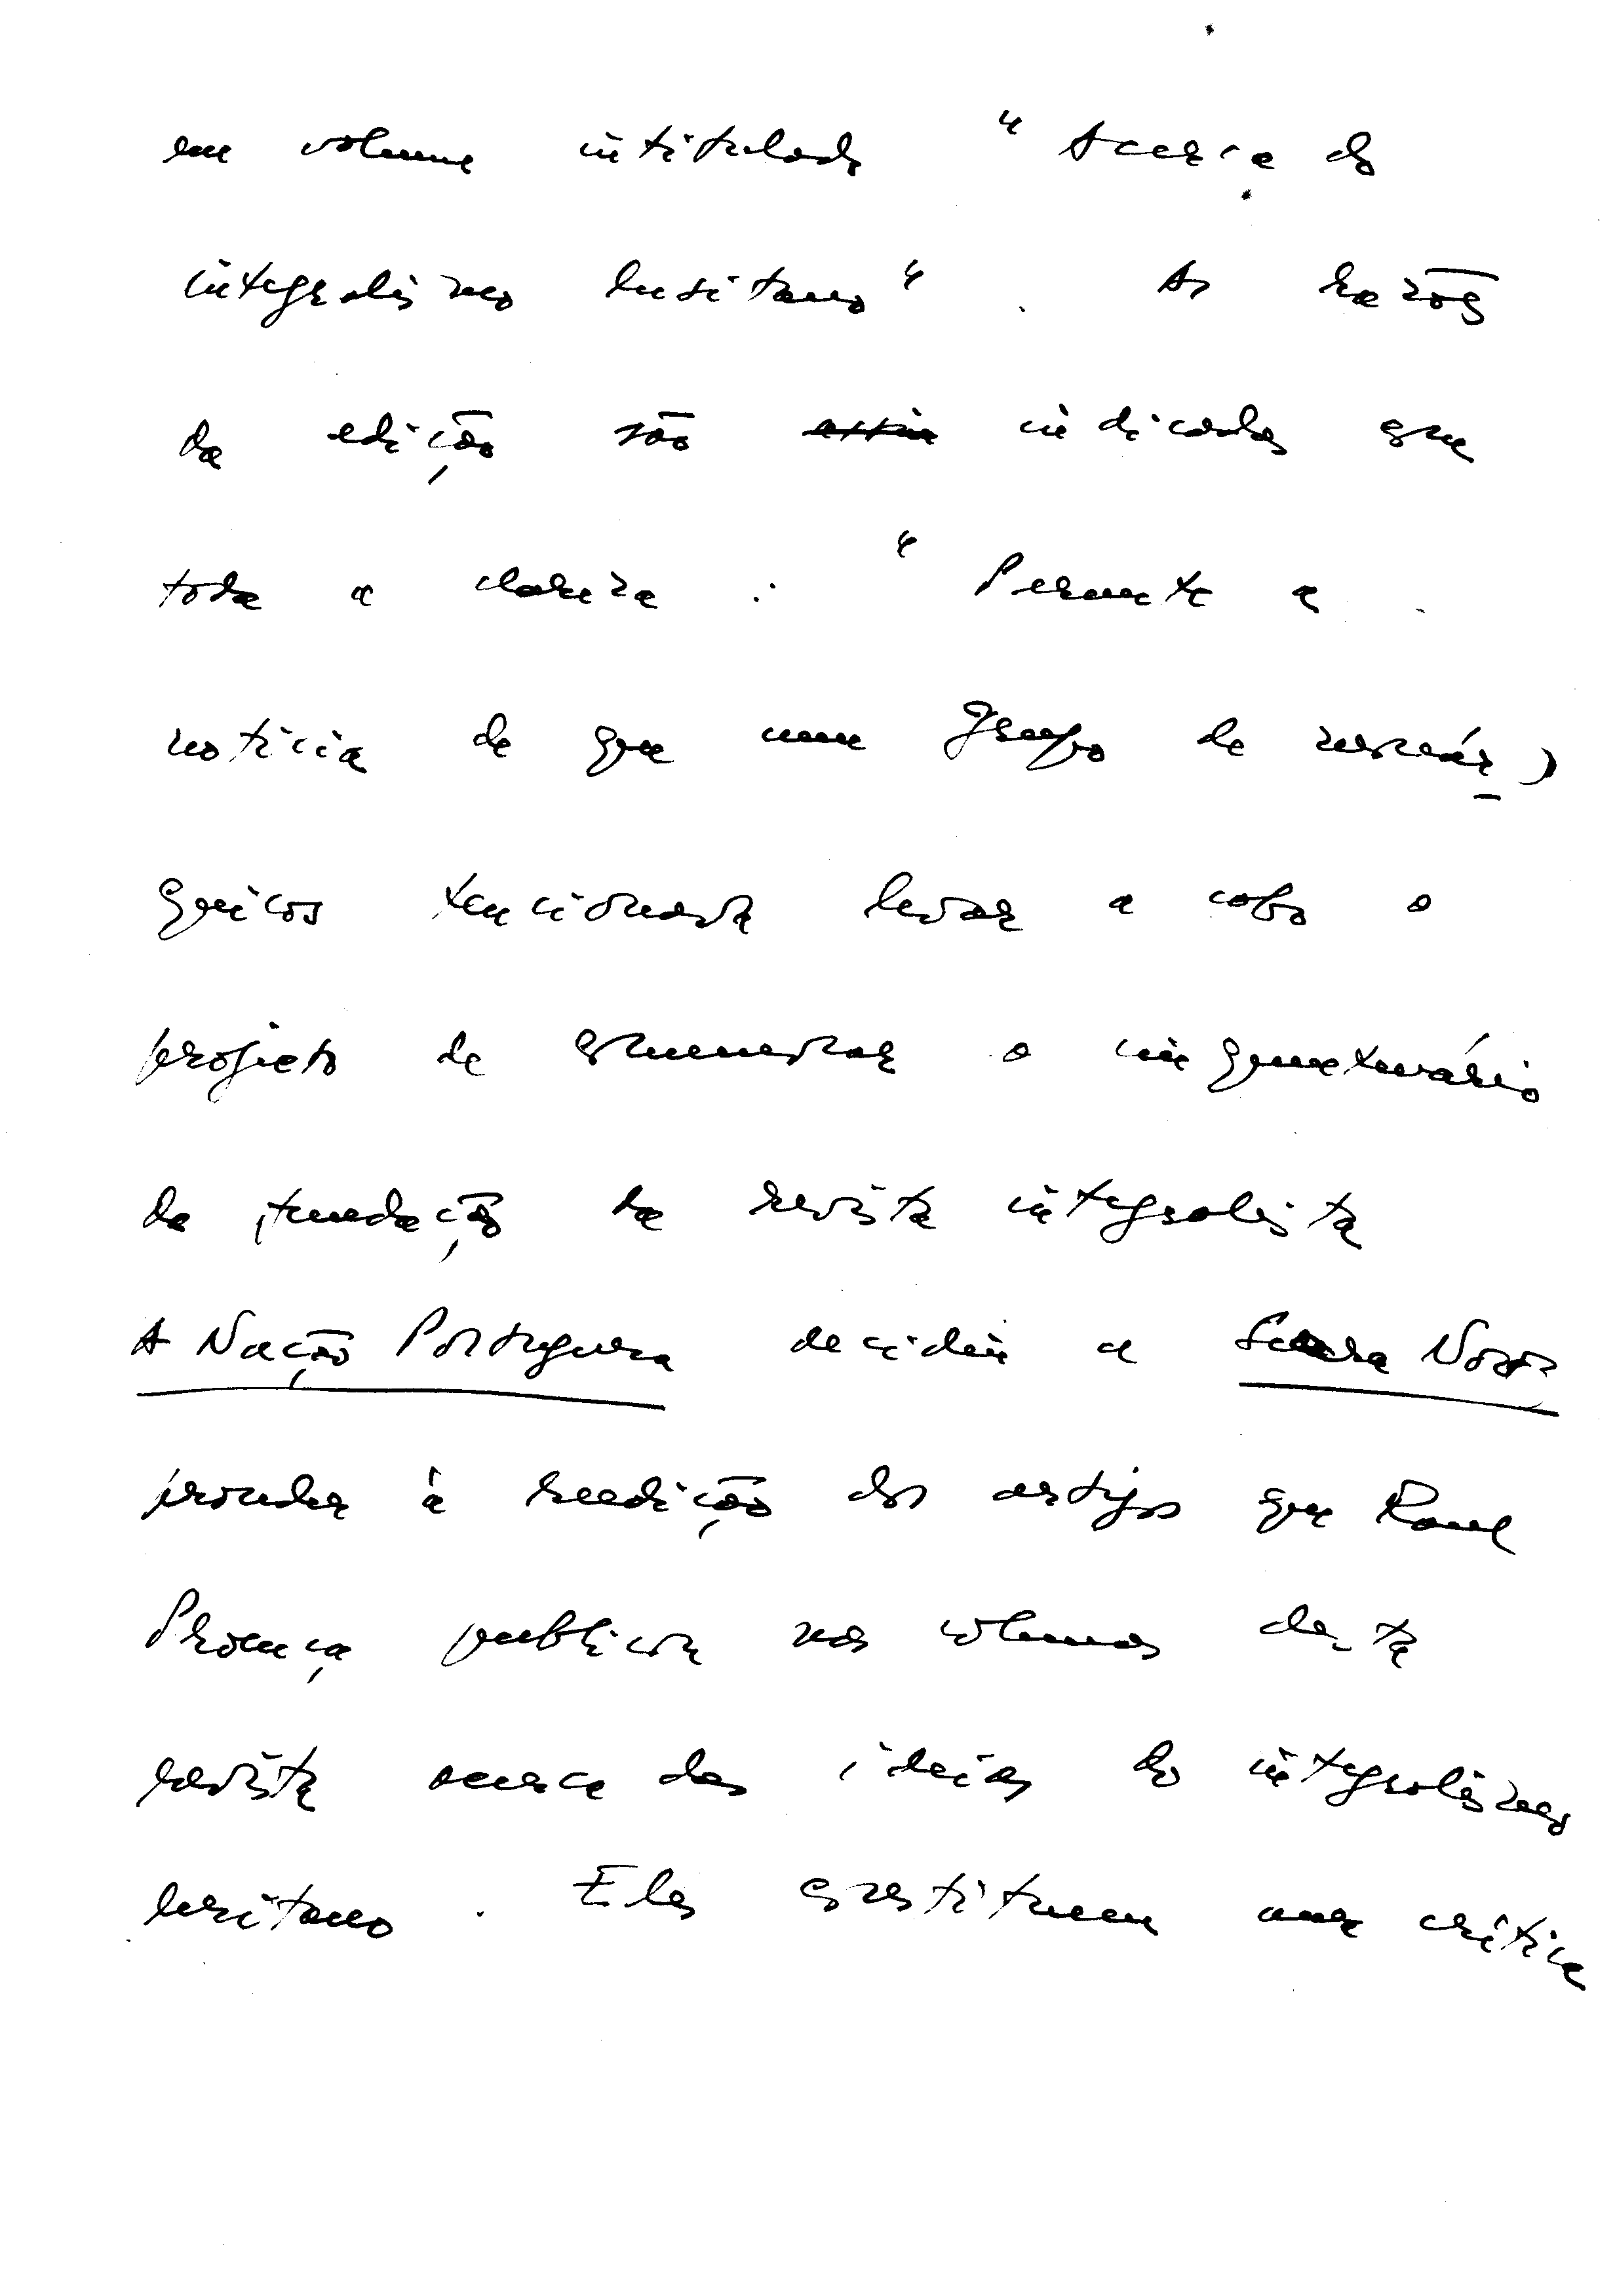 em volume intitulado "Acerca do
integralismo lusitano". As razões
da edição são assim indicadas com
toda a clareza: "Perante a
notícia de que um grupo de monár-
quicos tencionava levar a cabo o
projeto de comemorar o cinquentenário
da fundação da revista integralista
A Nação Portuguesa decidiu a Seara Nova
proceder à reedição dos artigos que Raul
Proença publicou nas colunas desta
revista acerca das ideias do integralismo
lusitano. Eles constituem uma crítica